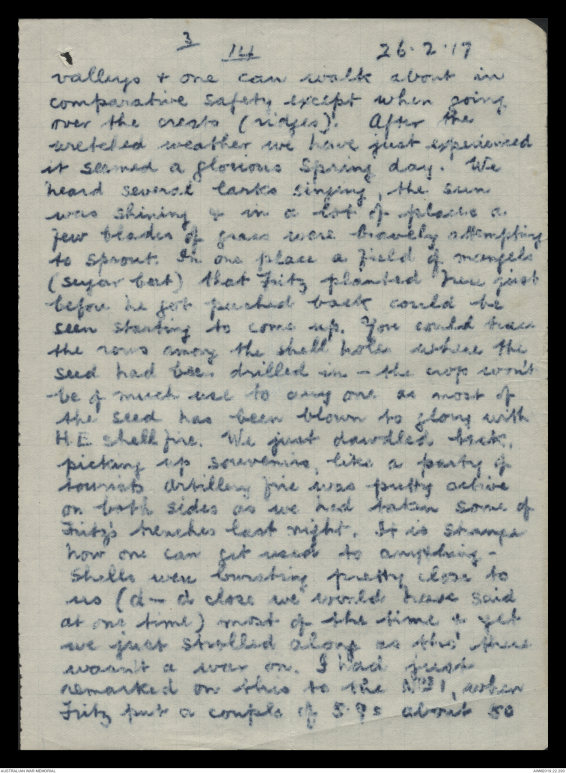 3
144
26.2.17
valleys & one can walk about in
comparative safety except when going
over the crests (ridges). After the
wretched weather we have just experienced
it seemed a glorious Spring day. We
heard several larks singing, the sun
was shining & in a lot of places a
few blades of grass were bravely attempting
to sprout. In one place a field of mangels
(sugar beet) that Fritz planted here just
before he got pushed back could be
seen starting to come up. You could trace
the rows among the shell holes where the
seed had been drilled in - the crop won't
be of much use to any one as most of
the seed has been blown to glory with
H.E. shell fire. We just dawdled back,
picking up souvenirs, like a party of
tourists. Artillery fire was pretty active
on both sides as we had taken some of
Fritz's trenches last night. It is strange
how one can get used to anything -
Shells were bursting pretty close to
us (d--d close we would have said
at one time) most of the time & yet
we just strolled along as tho' there
wasn't a war on. I had just
remarked on this to the No 1, when
Fritz put a couple of 5.9s about 50
AUSTRALIAN WAR MEMORIAL